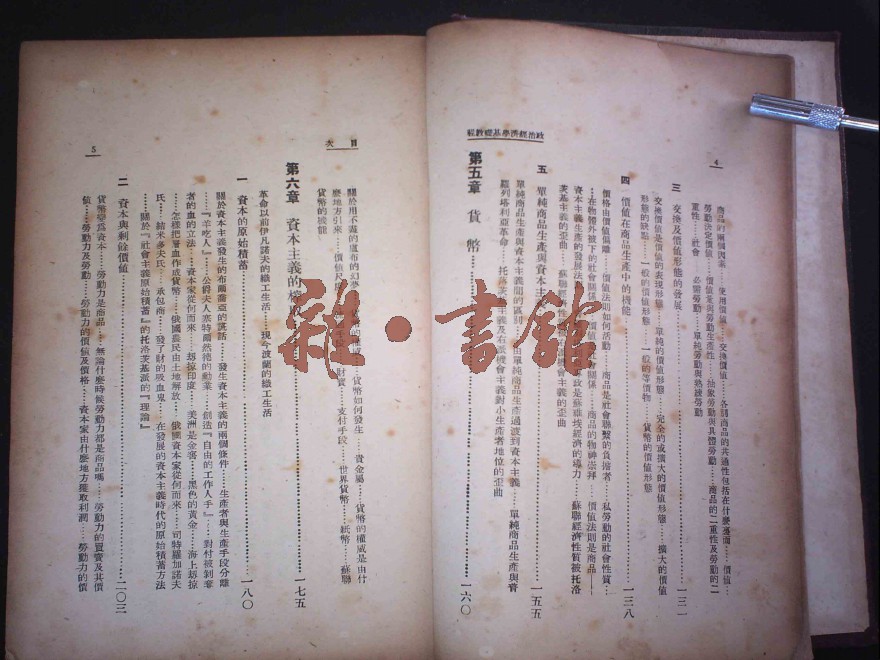 4
政治經濟學基礎教程
商品的兩個因素……使用價值……交換價值……各別商品的共通性包括在什麼裏面……價值……
勞動決定價值……價值量與勞動生產性……抽象勞動與具體勞動……商品的二重性及勞動的二
重性……社會……必需勞動……單純勞動與熟練勞動
三 交換及價值形態的發展……一二一
交換價值是價值的表現形態……單純的價值形態……完全的或擴大的價值形態……擴大的價值
形態的缺點……一般的價值形態……一般的等價物……貨幣的價值形態
四 價值在商品生產中的機能……一三八
價格由價值偏離……價值法則如何活動……商品是社會聯繫的負擔者……私勞動的社會性質……
在物體外被下的社會關係……價值是社會關係……商品的物神崇拜……價值法則是商品——
資本主義的發展法則……蘇聯經濟……政是蘇維埃經濟的導力……蘇聯經濟性質被托洛
茨基主義的歪曲……蘇聯經濟性質……會主義的歪曲
五 單純商品生產與資本主……一五五
單純商品生產與資本主義間的區別……由單純商品生產過渡到資本主義……單純商品生產與普
羅列塔利亞革命……托洛茨基主義及右翼機會主義對小生產者地位的歪曲
第五章 貨幣……一六〇
目次
5
關於用不盡的盧布的幻夢……貨幣如何發生……貴金屬……貨幣的權威是由什
麼地方引來……價值尺……手段……財寶……支付手段……世界貨幣……紙幣……蘇聯
貨幣的機能
第六章 資本主義的……一七五
革命以前伊凡諾夫的織工生活……現今波蘭的織工生活
一 資本的原始積蓄……一八〇
關於資本主義發生的布爾喬亞的童話……發生資本主義的兩個條件……生產者與生產手段分離
……『羊吃人』……公爵夫人塞特爾然德的勳業……創造『自由的工作人手』……對付被剝奪
者的血的立法……資本家從何而來……刼掠印度……美洲是金窖……黑色的黃金……海上刼掠
……怎樣把層血作成貨幣……俄國農民由土地解放……俄國資本家從何而來……司特羅加諾夫
氏……結米多夫氏……承包商……發了財的吸血鬼……在發展的資本主義時代的原始積蓄方法
……關於『社會主義原始積蓄』的托洛茨基派的『理論』
二 資本與剩餘價值……二〇三
貨幣變爲資本……勞動力是商品……無論什麼時候勞動力都是商品嗎……勞動力的買賣及其價
值……勞動力及勞動……勞動力的價值及價格……資本家由什麼地方獲取利潤……勞動力的價
雜·書館